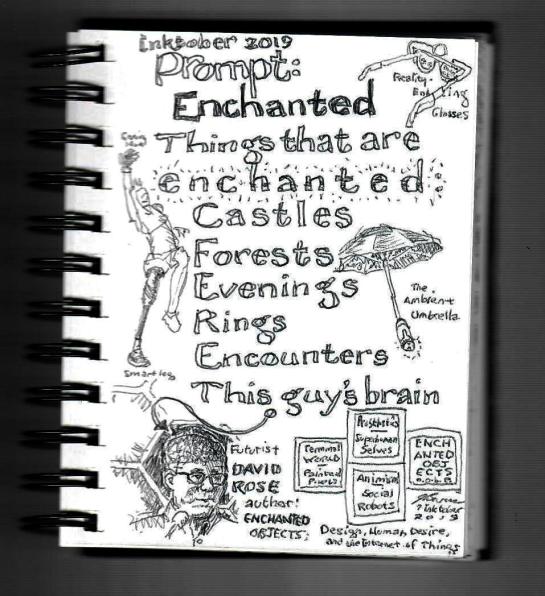 Inktober 2019
Prompt:
Enchanted
Things that are
enchanted:
Castles
Forests
Evenings
Rings
Encounters
This guy's brain
Reality.
Glasses
The
Ambient
Umbrella
Smart leg
Futurist
DAVID
ROSE
author:
ENCHANTED
OBJECTS:
Terminal
World
Prosthetics
Superhuman
Selves
Animism
Social
Robots
ENCH
ANTED
OBJ
ECTS
Inktober
2019
Design, Human, Desire,
and the Internet of Things